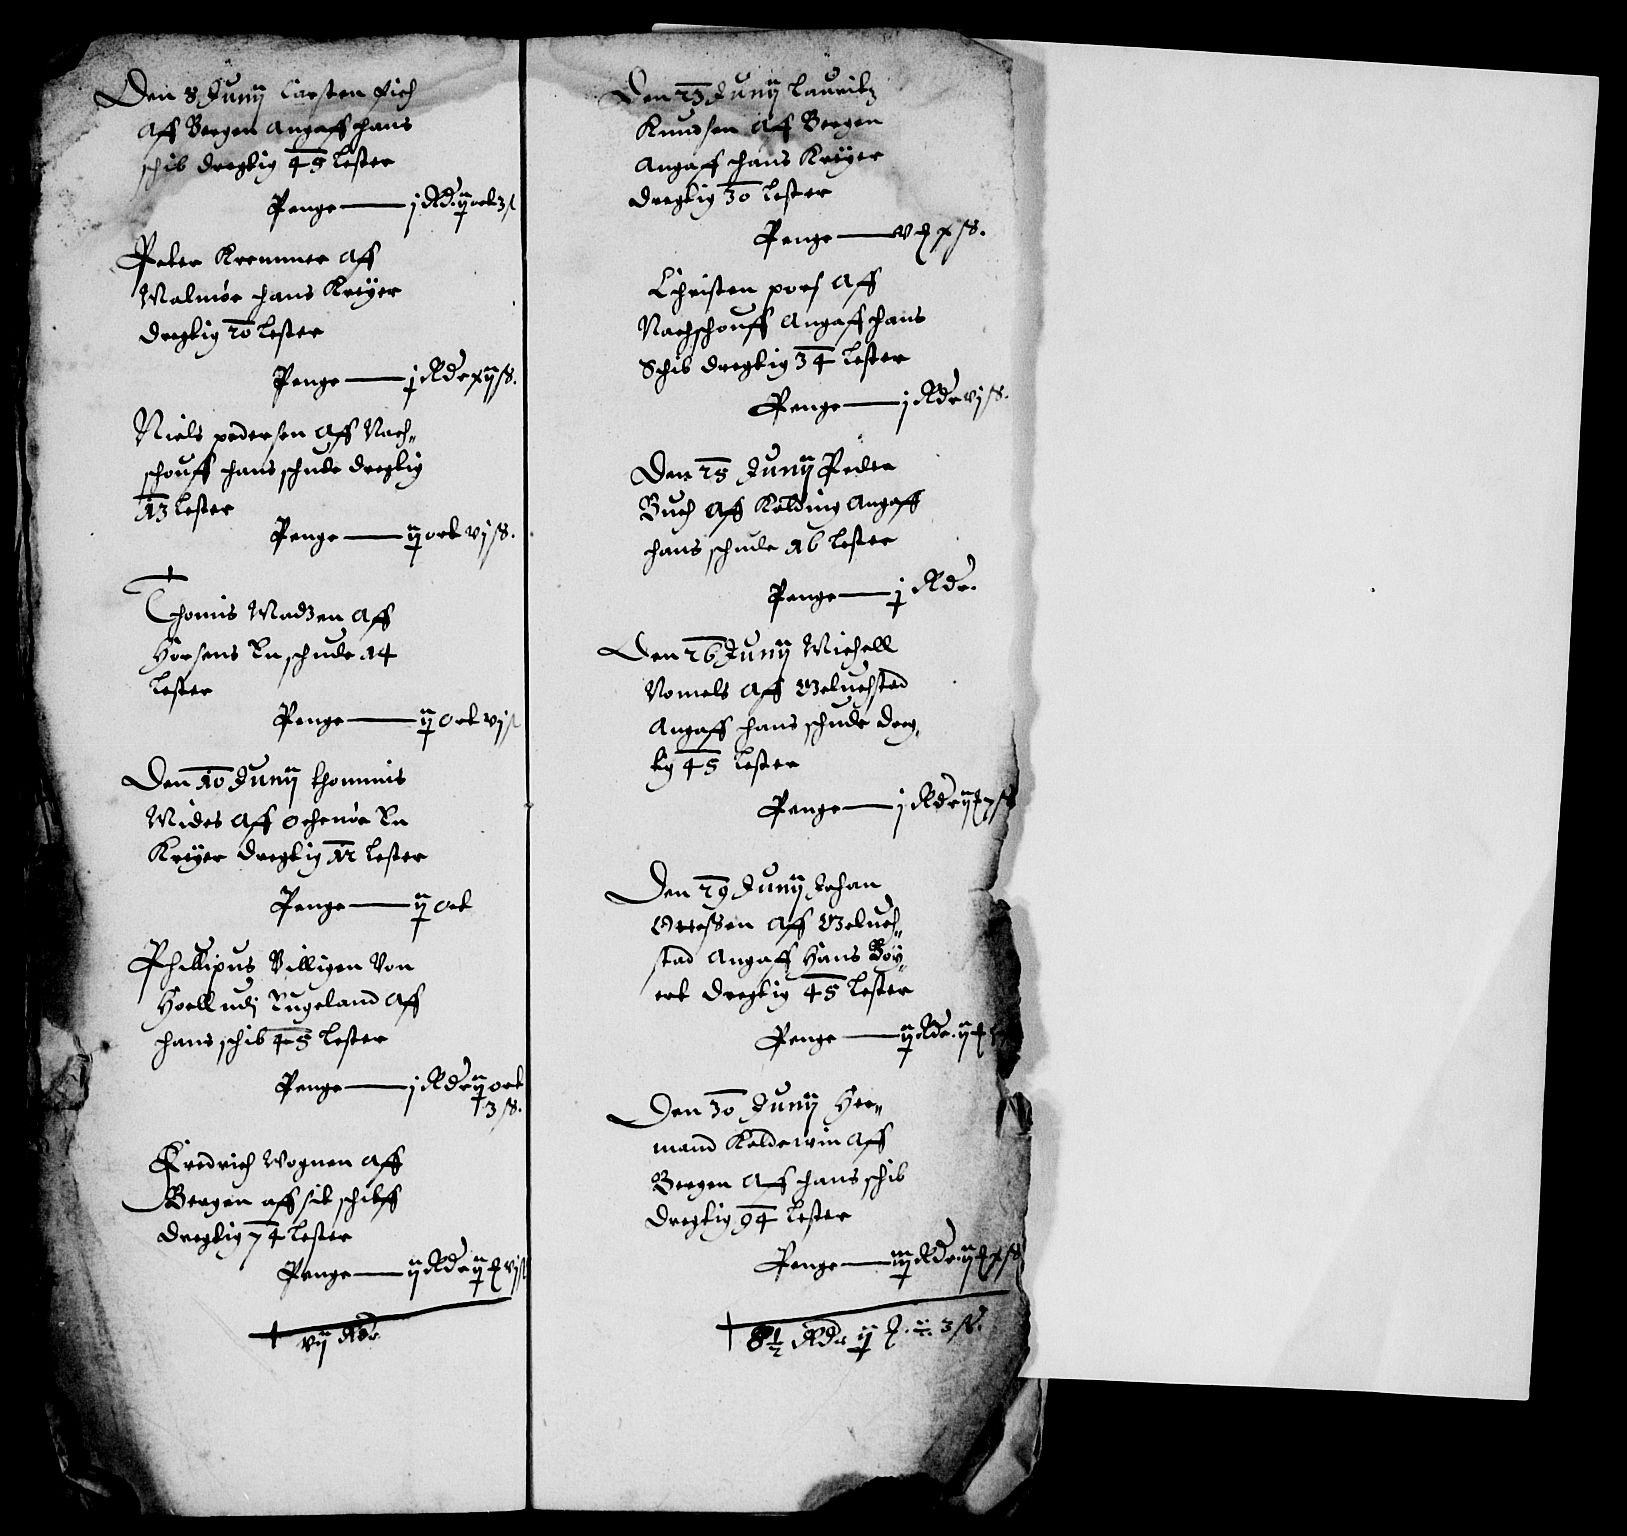 Den 8 Junij Carsten Fich
Aff Bergen Angaff hans
schib dregtig 45 Lester
Penge — j Rd. ij ort 3 ß
Peter Kremmer Aff
Malmøe hans Kreÿer
dregtig 20 Lester
Penge — j Rdr xij ß.
Niels pedersen Aff Nach-
schouff hans schude dregtig
13 Lester
Penge — ij ort vj ß.
Thomis Madzen Aff
Horsens En schude 14
Lester
Penge — ij Ort vj ß
Den 10 Junij thommis
Mides Aff
Kreÿer dregtig 12 Lester
Penge — ij Ort
Phillipus Villigen Von
Hoell udj Engeland Aff
hans schib 45 Lester
Penge — j Rdr ij ort
3 ß.
Fredrich Wognen Aff
Bergen aff sit schiff
dregtig 74 Lester
Penge — ij Rdr ij vj ß
vij Rdr
Den 23 Junij Lauritz
Knudsen Aff Bergen
Angaff hans Kreÿer
dregtig 30 Lester
Penge — x ß.
Christen pors Aff
Nachschouff Angaff hans
Schib dregtig 34 Lester
Penge — j Rdr vj ß.
Den 25 Junij Peder
Buch Aff Kolding Angaff
hans schude 16 Lester
Penge — j Rdr.
Den 26 Junij Michell
Nomels Aff
Angaff hans schude dreg-
tig 45 Lester
Penge — j Rdr
Den 29 Junij Johan
Aff
stad Angaff Hans Böÿ-
ert dregtig 45 Lester
Penge — ij Rdr. ij
Den 30 Junij Her-
mand Kelderwin Aff
Bergen Aff hans schib
dregtig 94 Lester
Penge — iij Rdr ij
8½ Rdr ij 3 ß.